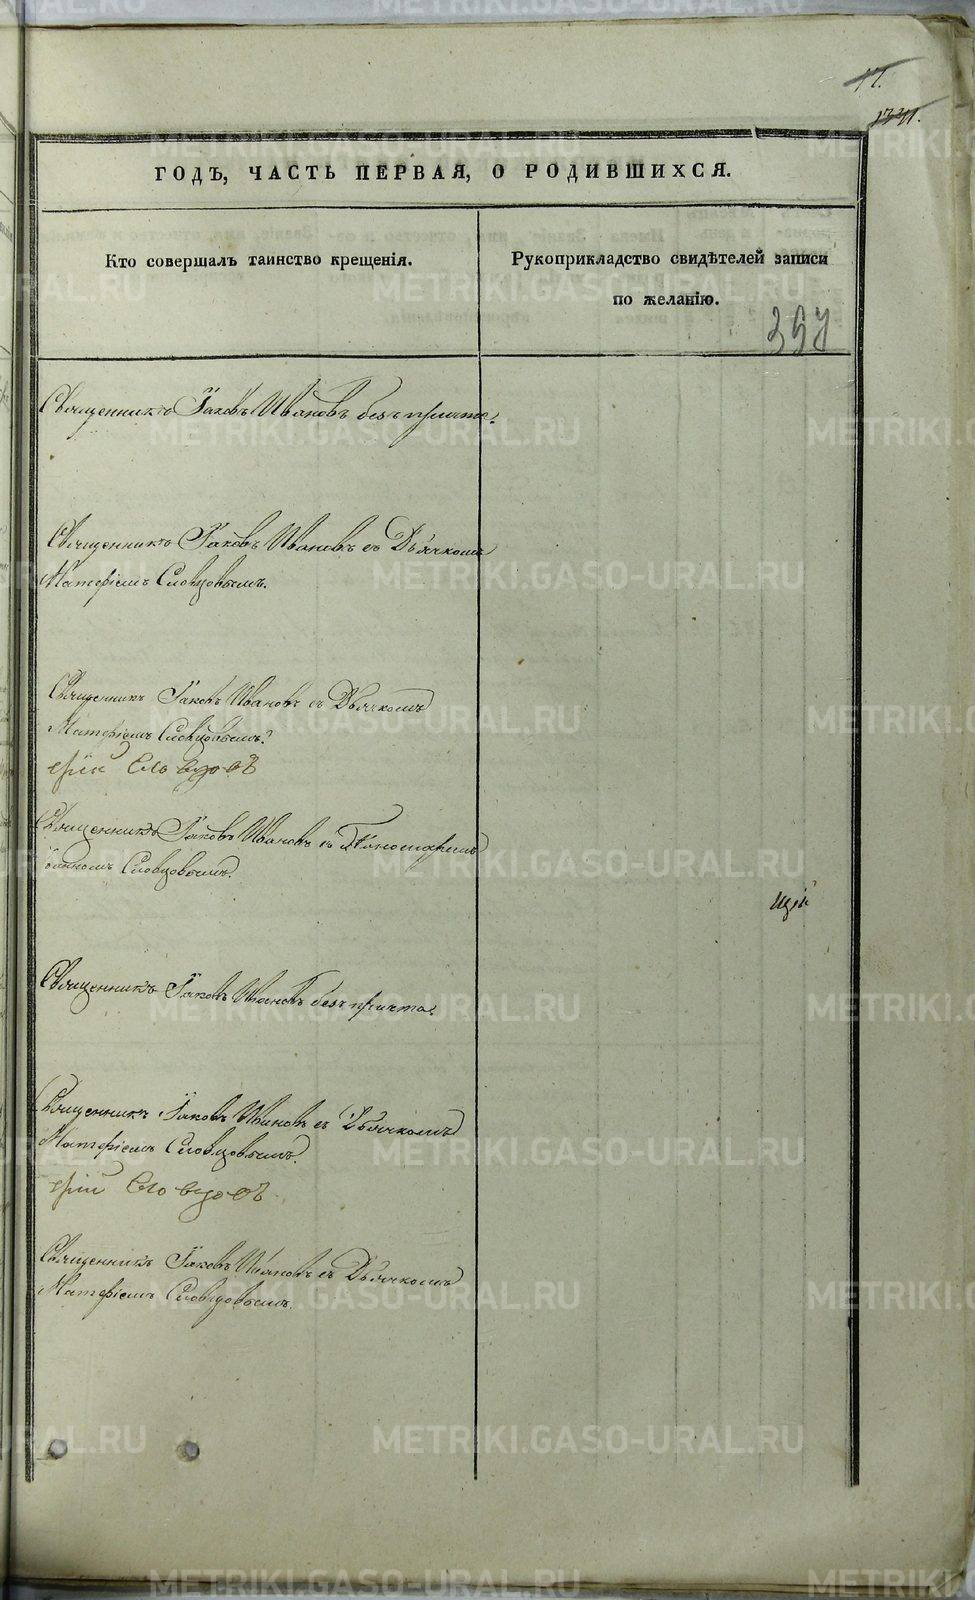 17.
ГОДЪ, ЧАСТЬ ПЕРВАЯ, О РОДИВШИХСЯ.
Кто совершалъ таинство крещенія.
Рукоприкладство свидѣтелей записи
по желанію.
357
Священникъ Іаковъ Ивановъ безъ причта.
Священникъ Іаковъ Ивановъ съ Дьячкомъ
Матфіемъ Словцовымъ.
Священникъ Іаковъ Ивановъ съ Дьячкомъ
Матфіемъ Словцовымъ.
Словцовъ
Священникъ Іаковъ Ивановъ съ Пономаремъ
Словцовымъ.
цій
Священникъ Іаковъ Ивановъ безъ причта.
Священникъ Іаковъ Ивановъ съ Дьячкомъ
Матфіемъ Словцовымъ.
Словцовъ
Священникъ Іаковъ Ивановъ съ Дьячкомъ
Матфіемъ Словцовымъ.
METRIKI.GASO-URAL.RU